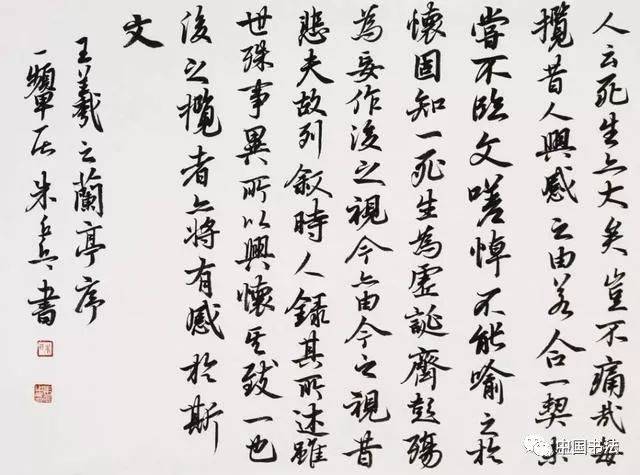 人云死生亦大矣豈不痛哉每
攬昔人興感之由若合一契未
嘗不臨文嗟悼不能喻之於
懷固知一死生為虛誕齊彭殤
為妄作後之視今亦由今之視昔
悲夫故列敘時人錄其所述雖
世殊事異所以興懷其致一也
後之攬者亦將有感於斯
文
王羲之蘭亭序
一顰居朱書
中国书法